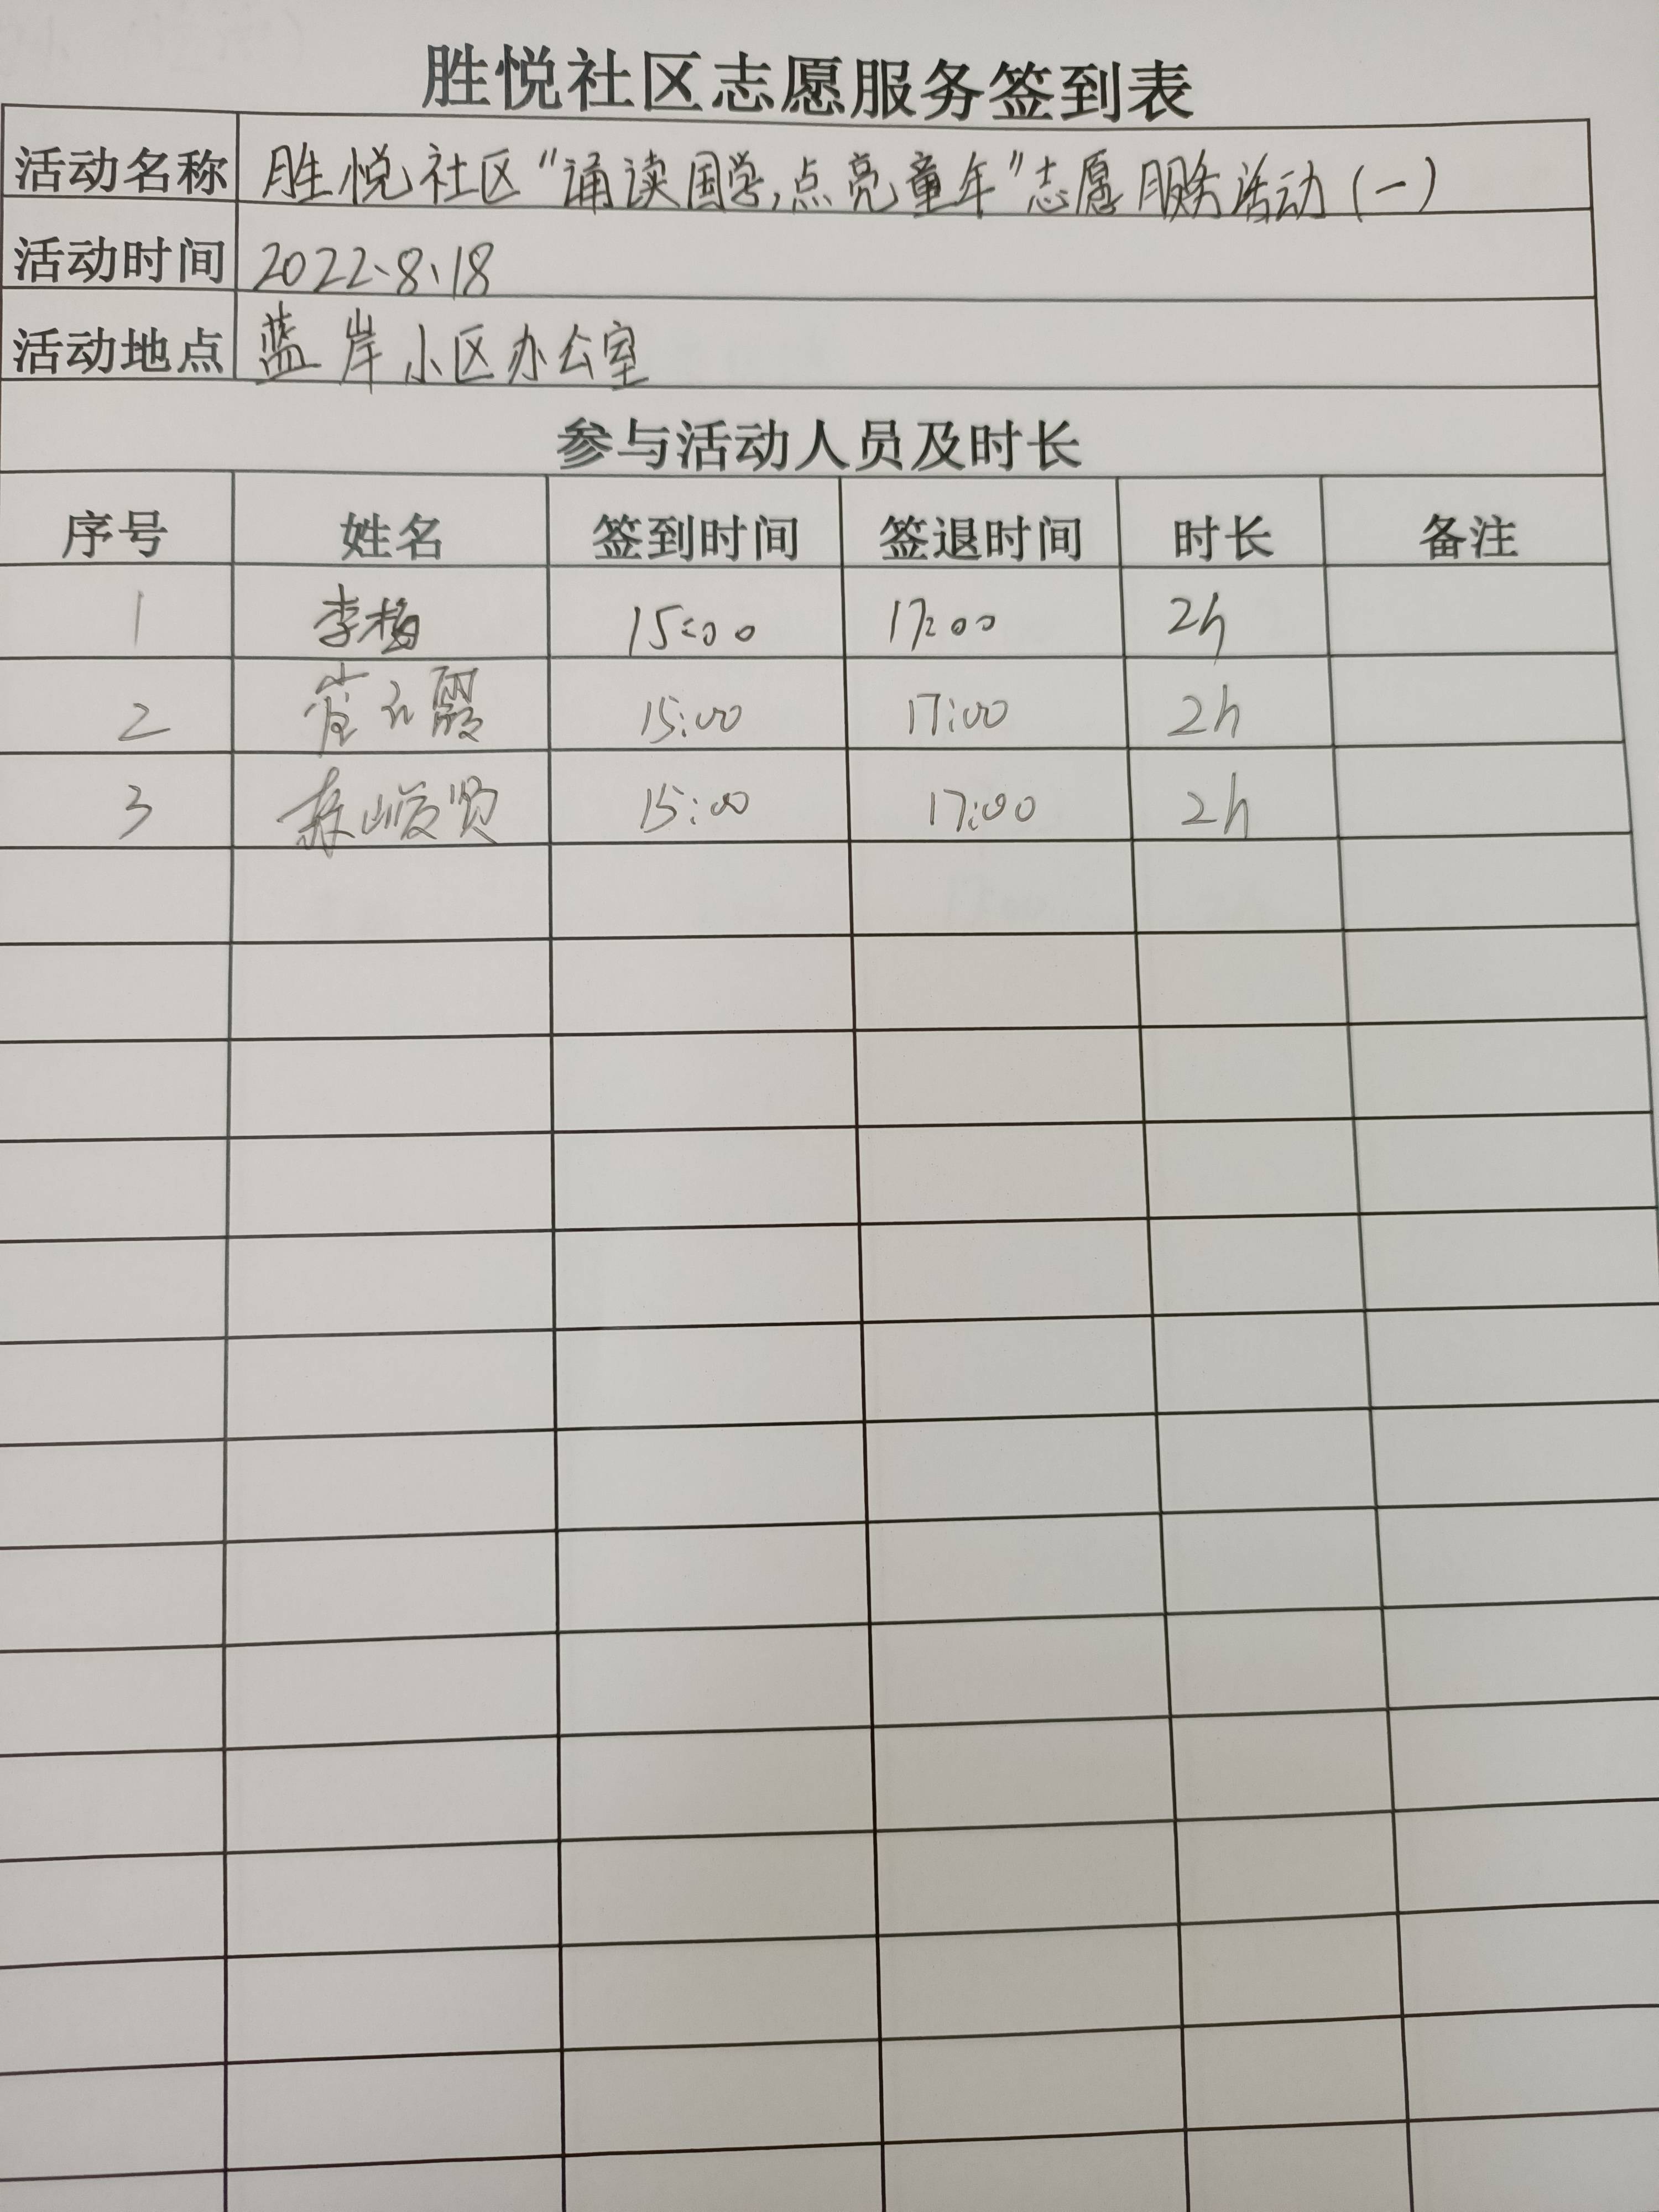 胜悦社区志愿服务签到表
活动名称 胜悦社区“诵读国学,点亮童年”志愿服务活动(一)
活动时间 2022、8、18
活动地点 蓝岸小区办公室
参与活动人员及时长
序号 姓名 签到时间 签退时间 时长 备注
1 李梅 15:00 17:00 2h
2 15:00 17:00 2h
3 15:00 17:00 2h